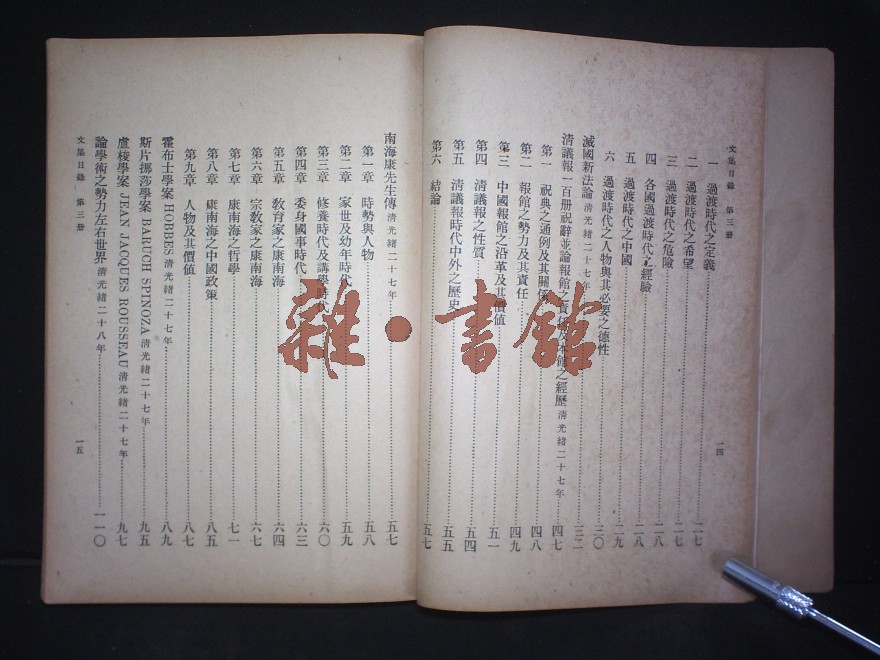 文集目錄 第三册
一 過渡時代之定義 二七
二 過渡時代之希望 二七
三 過渡時代之危險 二七
四 各國過渡時代之經驗 二八
五 過渡時代之中國 二八
六 過渡時代之人物與其必要之德性 二九
滅國新法論 清光緒二十七年 三二
清議報一百册祝辭並論報館之責任及本館之經歷 清光緒二十七年 四七
第一 祝典之通例及其關係 四八
第二 報館之勢力及其責任 四九
第三 中國報館之沿革及其價值 五一
第四 清議報之性質 五四
第五 清議報時代中外之歷史 五五
第六 結論 五七
一四
南海康先生傳 清光緒二十七年 五七
第一章 時勢與人物 五八
第二章 家世及幼年時代 五九
第三章 修養時代及講學時代 六〇
第四章 委身國事時代 六三
第五章 教育家之康南海 六四
第六章 宗教家之康南海 六七
第七章 康南海之哲學 七一
第八章 康南海之中國政策 八五
第九章 人物及其價值 八七
霍布士學案 HOBBES 清光緒二十七年 八九
斯片挪莎學案 BARUCH SPINOZA 清光緒二十七年 九五
盧梭學案 JEAN JACQUES ROUSSEAU 清光緒二十七年 九七
論學術之勢力左右世界 清光緒二十八年 一一〇
文集目錄 第三册
一五
雜·書館